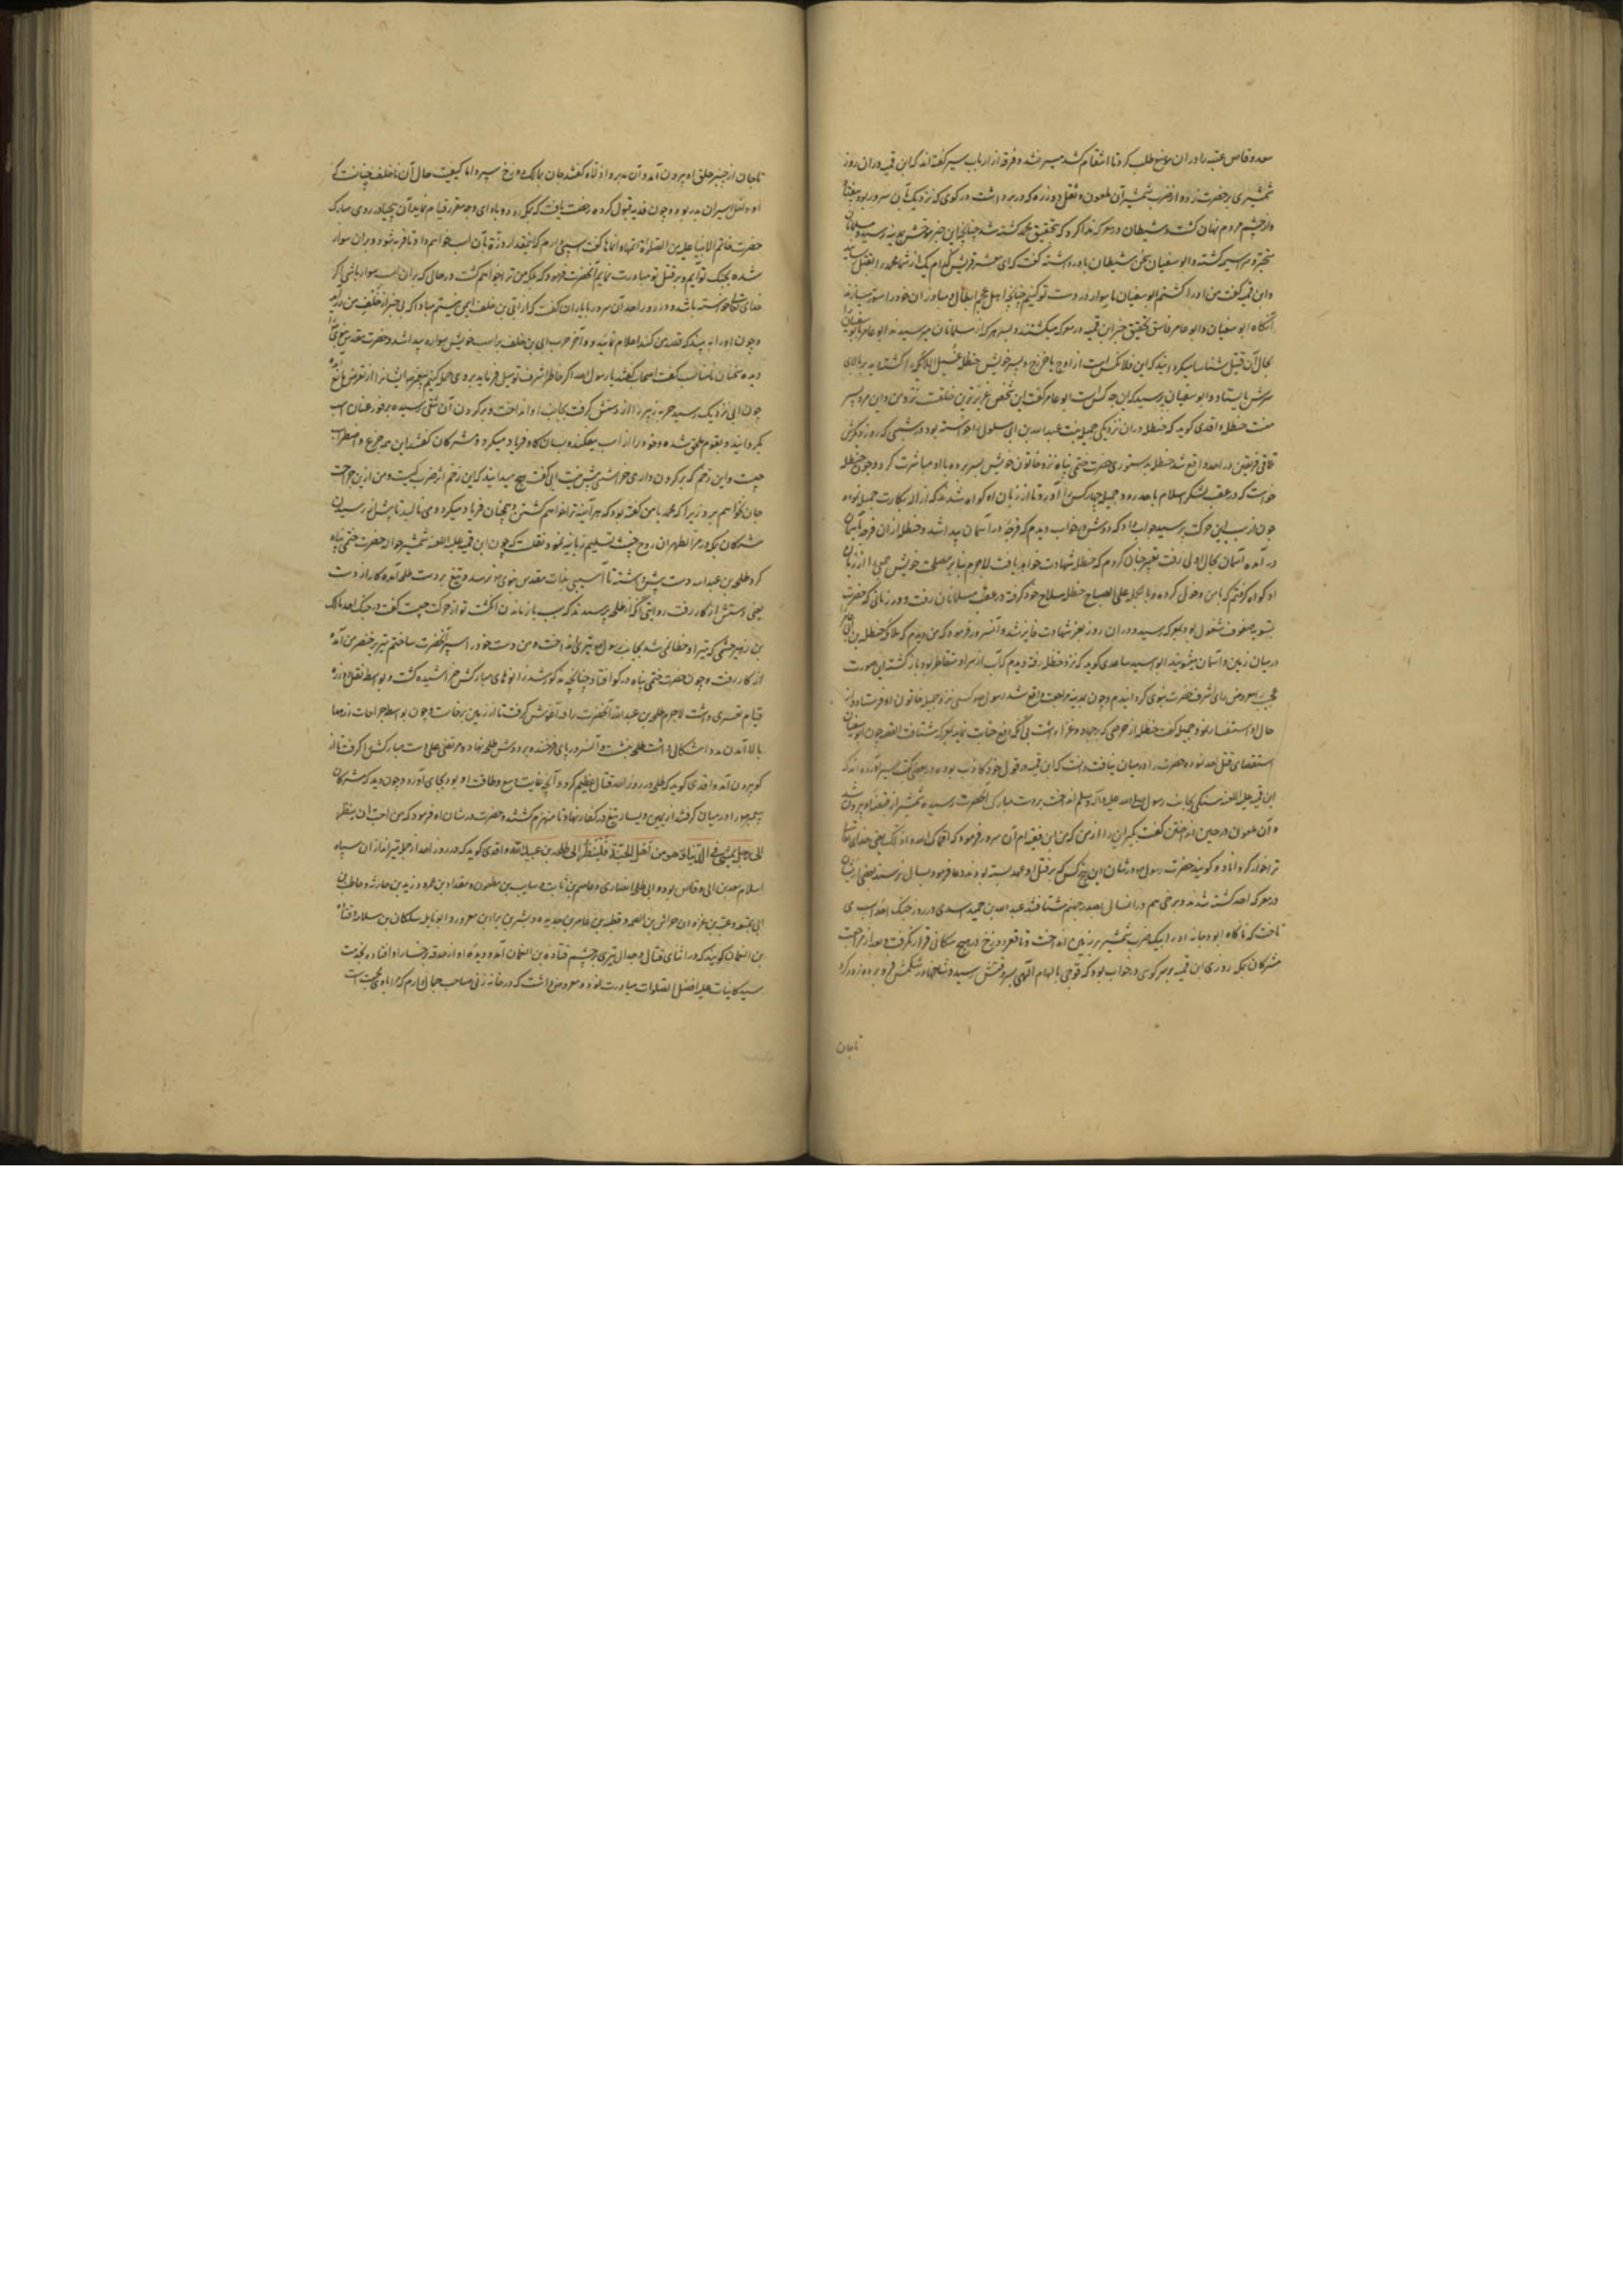 سعد وقاص عتبه را در ان موضع طلب کرد تا انتقام کشد میسر نشد و فرقه از ارباب سیر گفته اند که ابن قمیه دران روز
شمشیری بر حضرت زد و از ضرب شمشیر آن ملعون و ثقل دو زره که در بر داشت در کوی که نزدیک بآن سرور بود بیفتاد
و از چشم مردم نهان کشت و شیطان در معرکه ندا کرد که بتحقیق محمد کشته شد چنانچه این خبر موحش بمدینه رسید و مسلمانان
متحیر و سراسیمه کشته و ابوسفیان سخن شیطان باور داشته کفت که ای معشر قریش کدام یک از شما محمد را بقتل رسانید
و ابن قمیه کفت من او را کشتم ابوسفیان کفت ما سوار در دست تو کنیم چنانچه اهل عجم ابطال و مبارزان خود را میسازند
آنکاه ابوسفیان و ابو عامر فاسق بتحقیق خبر ابن قمیه در معرکه میکشتند و بسر هر که از مسلمانان میرسیدند ابو عامر با ابوسفیان
بحال آن قتیل شناسا میکردانید که این فلان کس است از اوس یا خزرج و پسر خویش حنظله غسیل الملائکه را کشته دید بر بالای
سرش بایستاد و ابوسفیان پرسید که این چه کس است ابو عامر کفت این شخص عزیزترین خلقست نزد من و این مرد پسر
منست حنظله واقدی کوید که حنظله دران نزدیکی جمیله بنت عبدالله بن ابی سلول را خواسته بود و در شبی که روز دیکرش
تلاقی فریقین در احد واقع شد حنظله بدستوری حضرت ختمی پناه نزد خاتون خویش بسر برده با او مباشرت کرد و چون حنظله
خواست که در عقب لشکر اسلام باحد رود جمیله چهار کس را آورد تا از زبان او کواه شدند که ازاله بکارت جمیله نموده
چون از سبب این حرکت پرسید جواب داد که دوش در خواب دیدم که فرجه در آسمان پیدا شد و حنظله از ان فرجه بآسمان
در آمده آسمان بحال اول رفت تعبیر چنان کردم که حنظله شهادت خواهد یافت لاجرم بنابر مصلحت خویش جمعی را از زبان
او کواه کرفتم که با من دخول کرده و بالجمله علی الصباح حنظله سلاح خود کرفته در عقب مسلمانان رفت و در زمانی که حضرت
بتسویه صفوف مشغول بود بمعرکه رسید و دران روز بعز شهادت فایز شد و آنسرور فرمود که من دیدم که ملائکه حنظله بن ابی عامر را
درمیان زمین و آسمان میشویند ابو اسید ساعدی کوید که نزد حنظله رفته دیدم که آب از سر او متقاطر بود باز کشته این صورت
عجیب معروض رای اشرف حضرت نبوی کردانیدم و چون بمدینه مراجعت واقع شد رسول صلعم کسی نزد جمیله خاتون او فرستاد و از
حال او استفسار نمود جمیله کفت حنظله از حرصی که بر جهاد و غزا داشت بی آنکه رفع جنابت نماید بمعرکه شتافت القصه چون ابوسفیان
استقصای قتل احد نموده حضرت را در میان نیافت دانست که ابن قمیه در قول خود کاذب بوده و در بعضی کتب سیر آورده اند که
ابن قمیه علیه اللعنه سنکی بجانب رسول صلی الله علیه و آله و سلم انداخت بر دست مبارک آنحضرت رسیده شمشیر از قبضه او بیرون شد
و آن ملعون در حین انداختن کفت بکیر این را از من که من ابن قمیه ام آن سرور فرمود که اقماک الله و اذلک یعنی خدای تعالی
ترا خوار کرداناد و کویند حضرت رسول در شان این پنج کس که بر قتل او عهد بسته بودند دعا فرمود بسال نرسند بعضی ازیشان
در معرکه احد کشته شدند و برخی هم در انسال بصدر جهنم شتافتند عبدالله بن حمید اسدی در روز جنک احد اسب می
تاخت که ناکاه ابو دجانه او را بیک ضرب شمشیر بر زمین انداخت و تا قعر دوزخ در هیچ مکانی قرار نکرفت و بعد از مراجعت
مشرکان بمکه روزی ابن قمیه بر سر کوهی در خواب بود که قوچی بالهام الهی بسر وقتش رسید و شاخها در شکمش فرو برده زور کرد
تاجان
تا جان از چنبر حلق او بیرون آمد و آن مدبر واژ زاه کفشد جان بمالک دوزخ سپرد اما کیفیت حال آن ناخلف چنانست که
او داخل اسیران بدر بود و چون فدیه قبول کرده رخصت یافت که بمکه رود و باه ای وجه مقرر قیام نماید آن بیحیا در روی مبارک
حضرت خاتم الانبیا علیه من الصلوة اتمها و انماها کفت اسپی دارم که اینمقدار ذرة بآن اسب خواهم داد تا فربه شود و بران سوار
شده بجنک تو آیم و بر قتل تو مبادرت نمایم آنحضرت فرمود که بلکه من ترا خواهم کشت در حالی که بران اسب سوار باشی اکر
خدای تعالی خواسته باشد و در روز احد آن سرور با یاران کفت که از ابی بن خلف ایمن نیستم مبادا که بی خبر از خلف من در آید
و چون او را ببیند که قصد من کند اعلام نمایید و در آخر حرب ابی بن خلف بر اسب خویش سواره پیدا شد و حضرت مقدس نبوی را
دیده سخنان نامناسب کفت اصحاب کفتند یا رسول الله اکر خاطر اشرف توصیل فرماید بر وی حمله کنیم پیغمبر ایشانرا از تعرض مانع آمده
چون ابی نزدیک رسید حربه زبیر را از دستش کرفت بجانب او انداخت و بر کردن آن شقی رسیده بر فور عنان اسب
بکردانید و بقوم ملحق شده و خود را از اسب بیفکند و بسان کاو فریاد میکرد و مشرکان کفتند این همه جزع و اضطراب
چیست و این زخم که بر کردن داری خراشی بیش نیست ابی کفت هیچ میدانید که این زخم از ضرب کیست و من ازین جراحت
جان نخواهم برد زیرا که محمد با من کفته بود که هر آینه ترا خواهم کشتن و همچنان فریاد میکرد و می نالید تا پیش از رسیدن
مشرکان بمکه در مرالظهران روح خبیث تسلیم زبانیه نمود و نقلست که چون ابن قمیه علیه اللعنه شمشیر حواله حضرت ختمی پناه
کرد طلحه بن عبدالله دست پیش داشته تا آسیبی بذات مقدس نبوی نرسد و تیغ بر دست طلحه آمده کار از دست
یعنی دستش از کار رفت روایتی آنکه از طلحه پرسیدند که سبب باز ماندن انکشت تو از حرکت چیست کفت در جنک احد مالک
بن زهیر جشمی که تیر او خطا نمی شد بجانب رسول تیری انداخت و من دست خود را سپر آنحضرت ساختم تیر بر خنصر من آمده
از کار رفت و چون حضرت ختمی پناه در کو افتاد چنانچه مذکور شد زانوهای مبارکش خراشیده کشت و بواسطه ثقل دو زره
قیام تعسری داشت لاجرم طلحه بن عبدالله آنحضرت را در آغوش کرفت تا از زمین برخاست و چون بواسطه جراحات از معا
بالا آمدن مدد اشکالی داشت طلحه بنشست و آنسرور پای فرخنده بر دوش طلحه نهاد و مرتضی علی دست مبارکش را کرفت تا از
کو بیرون آمد واقدی کوید که طلحه در روز احد قتال عظیم کرد و آنچه غایت وسع و طاقت او بود بجای آورد و چون دید که مشرکان
پیغمبر را در میان کرفتند از یمین و یسار تیغ در کفار نهاد تا منهزم کشتند و حضرت در شان او فرمود که من احب ان ینظر
الی رجل یمشی فی الدنیا و هو من اهل الجنة فلینظر الی طلحة بن عبید الله واقدی کوید که در روز احد از جمله تیراندازان سپاه
اسلام سعد بن ابی وقاص بود و ابو طلحه انصاری و عاصم بن ثابت و سایب بن مظعون و مقداد بن عمرو و زید بن حارثه و حاطب بن
ابی بلتعه و عتبه بن غزوان و خراش بن الصمه و قطبه بن عامر بن حدیده و بشر بن براء بن معرور و ابو نایله سلکان بن سلامه و قتاده
بن النعمان کویند که در اثنای قتال و جدال تیری بر چشم قتاده بن النعمان آمد و دیده او از حدقه بر رخساره او افتاده بخدمت
سید کاینات علیه افضل الصلوات مبادرت نموده معروض داشت که در خانه زنی صاحب جمال دارم که مرا با وی محبت است